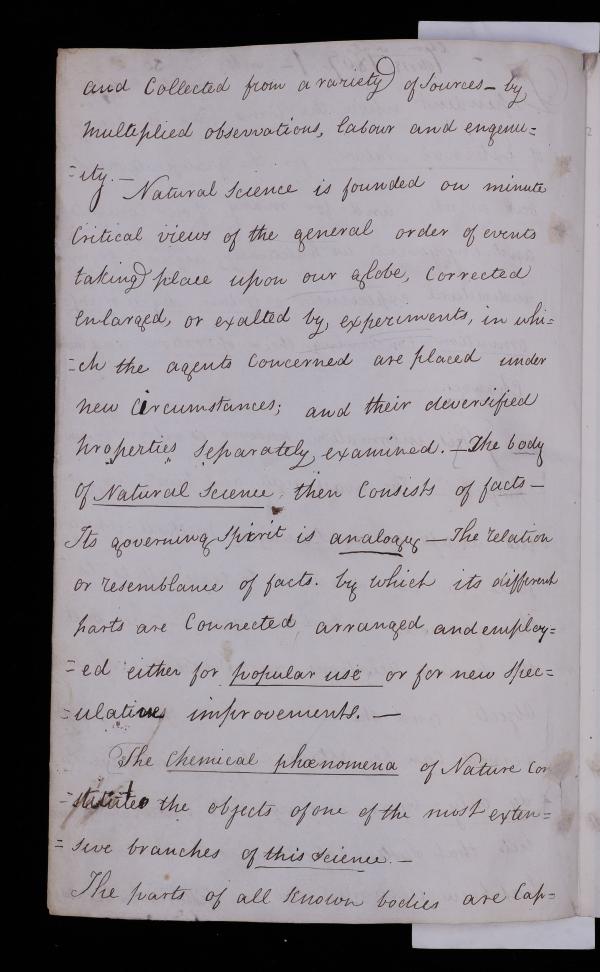 and Collected from a variety of Sources – by
Multiplied observations, labour and engenu=
=ity. –
Natural Science is founded on minute
Critical views of the general order of events
taking place upon our globe, Corrected
Enlarged, or exalted by experiments, in whi=
=ch the agents Concerned are placed under
new Circumstances; and their deversified
properties Separately examined. – The body
of Natural Science then Consists of facts –
Its governing Spirit is analogy – The relation
or resemblance of facts. by which its different
parts are Connected, arranged, and employ=
=ed either for popular use or for new Spec=
=ulative improvements. –
The Chemical phœnomena of Nature Con
=stitute the objects of one of the most exten=
=sive branches of this Science. –
The parts of all known bodies are Cap=